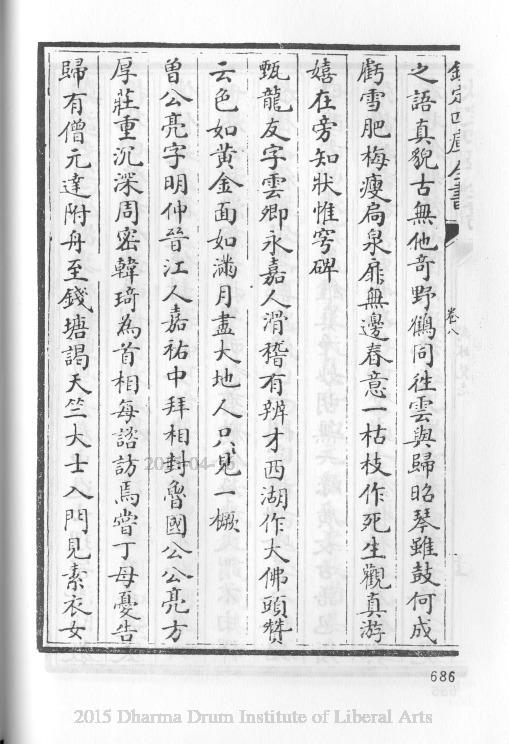 欽定四庫全書
卷八
之語真貌古無他奇野鶴同徃雲與歸昭琴雖鼓何成
虧雪肥梅瘦扄泉扉無邊春意一枯枝作死生觀真游
嬉在旁知狀惟穹碑
甄龍友字雲卿永嘉人滑稽有辨才西湖作大佛頭贊
云色如黄金面如滿月盡大地人只見一橛
曽公亮字明仲晉江人嘉祐中拜相封魯國公公亮方
厚莊重沉深周宻韓琦為首相每諮訪焉嘗丁母憂告
歸有僧元達附舟至錢塘謁天竺大士入門見素衣女
686
2015 Dharma Drum Institute of Liberal Arts